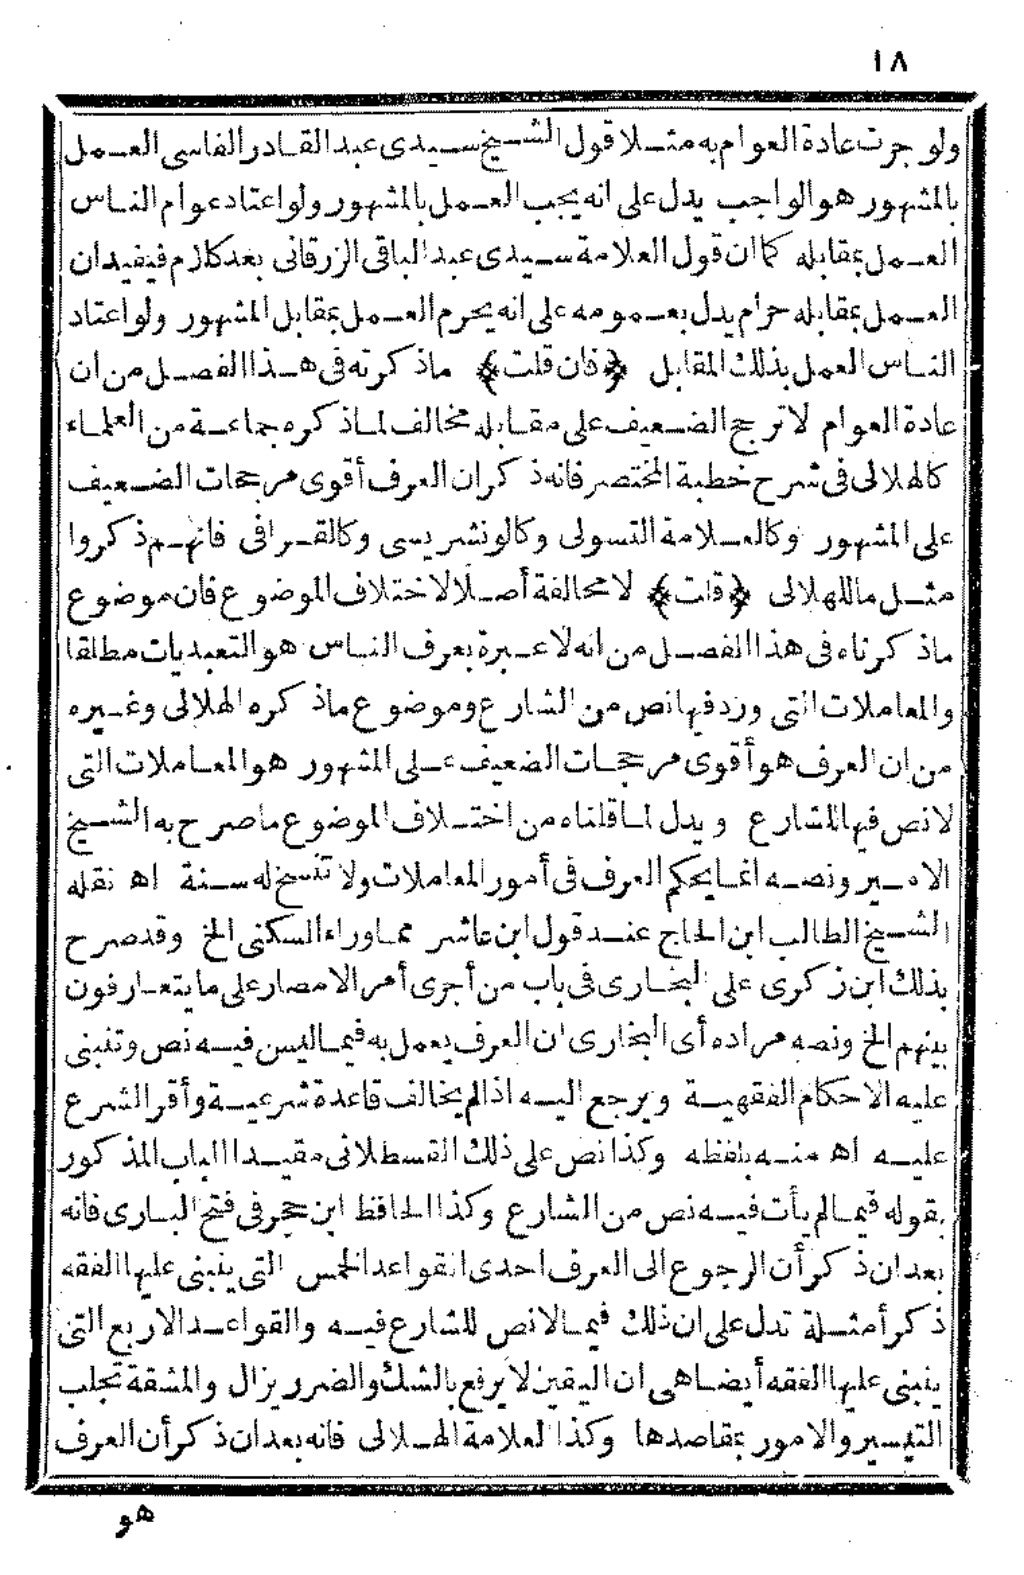 ١٨
ولو جرت عادة العوام به مثلا قول الشيخ سيدى عبد القادر الفاسى العمل
بالمشهور هو الواجب يدل على انه يجب العمل بالمشهور ولو اعتاد عوام الناس
العمل بمقابله كما ان قول العلامة سيدى عبد الباقى الزرقانى بعد كلام فيفيد ان
العمل بمقابله حرام يدل بعمومه على انه يحرم العمل بمقابل المشهور ولو اعتاد
الناس العمل بذلك المقابل ﴿فان قلت﴾ ماذكرته فى هذا الفصل من ان
عادة العوام لا ترجح الضعيف على مقابله مخالف لما ذكره جماعة من العلماء
كالهلالى فى شرح خطبة المختصر فانه ذكر ان العرف أقوى مرجحات الضعيف
على المشهور وكالعلامة التسولى وكالونشريسى وكالقرافى فانهم ذكروا
مثل ما للهلالى ﴿قلت﴾ لا مخالفة أصلا لاختلاف الموضوع فان موضوع
ماذكرناه فى هذا الفصل من انه لا عبرة بعرف الناس هو التعبديات مطلقا
والمعاملات التى ورد فيها نص من الشارع وموضوع ماذكره الهلالى وغيره
من ان العرف هو أقوى مرجحات الضعيف على المشهور هو المعاملات التى
لا نص فيها للشارع ويدل لما قلناه من اختلاف الموضوع ما صرح به الشيخ
الامير ونصه انما يحكم العرف فى أمور المعاملات ولا تنسخ له سنة اه نقله
الشيخ الطالب ابن الحاج عند قول ابن عاشر مما وراء السكنى الخ وقد صرح
بذلك ابن زكرى على البخارى فى باب من أجرى أمر الامصار على ما يتعارفون
بينهم الخ ونصه مراده أى البخارى ان العرف يعمل به فيما ليس فيه نص وتنبنى
عليه الاحكام الفقهية ويرجع اليه اذا لم يخالف قاعدة شرعية وأقر الشرع
عليه اه منه بلفظه وكذا نص على ذلك القسطلانى مقيدا الباب المذكور
بقوله فيما لم يأت فيه نص من الشارع وكذا الحافظ ابن حجر فى فتح البارى فانه
بعد ان ذكر أن الرجوع الى العرف احدى القواعد الخمس التى ينبنى عليها الفقه
ذكر أمثلة تدل على ان ذلك فيما لا نص للشارع فيه والقواعد الاربع التى
ينبنى عليها الفقه أيضا هى ان اليقين لا يرفع بالشك والضرر يزال والمشقة تجلب
التيسير والامور بمقاصدها وكذا العلامة الهلالى فانه بعد ان ذكر أن العرف
هو